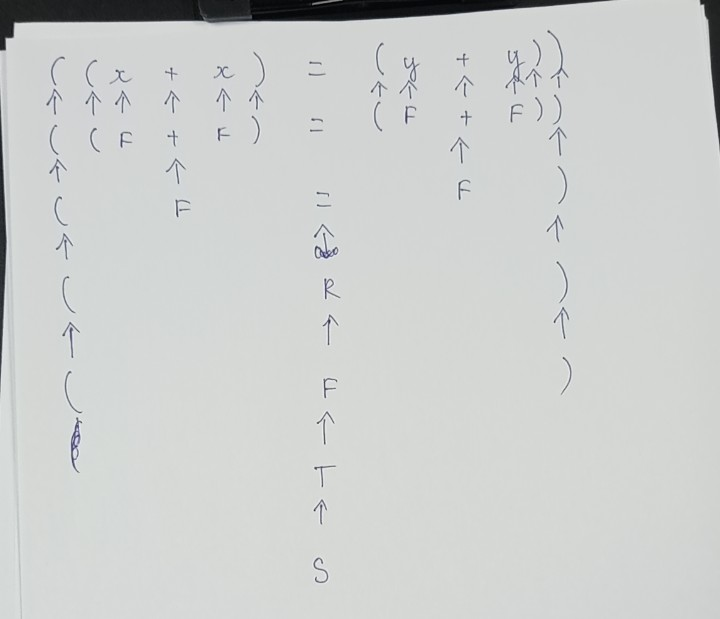 ( ( x + x ) = ( y + y ) )
↑ ↑ ↑ ↑ ↑ ↑ ↑ ↑ ↑ ↑ ↑ ↑
( ( F + F ) = ( F + F ) )
↑ ↑ ↑ ↑
( F = F )
↑ ↑ ↑
( R )
↑ ↑ ↑
( F )
↑
T
↑
S